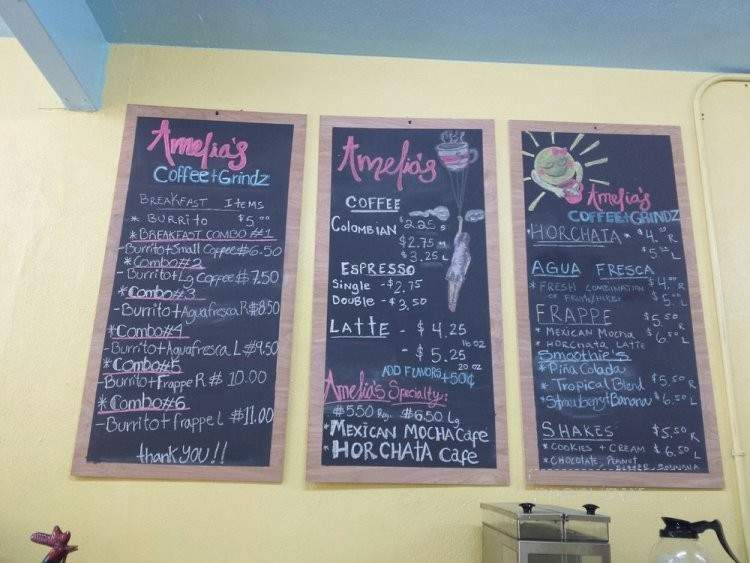 Amelia's
Coffee+Grindz
Breakfast Items
* Burrito $5.00
* Breakfast Combo #1
- Burrito+Small Coffee $6.50
* Combo #2
- Burrito+Lg Coffee $7.50
* Combo #3
- Burrito+Aguafresca R $8.50
* Combo #4
- Burrito+Aguafresca L $9.50
* Combo #5
- Burrito+Frappe R $10.00
* Combo #6
- Burrito+frappe L $11.00
thank YOU!!
Amelia's
COFFEE
Colombian $2.25 S
$2.75 M
$3.25 L
ESPRESSO
Single - $2.75
Double - $3.50
LATTE - $4.25
16 oz
- $5.25
20 oz
ADD FLAVORS +50¢
Amelia's Specialty:
$5.50 Reg. $6.50 Lg
* MEXICAN MOCHA Cafe
* HORCHATA Cafe
Amelia's
COFFEE+GRINDZ
* HORCHATA * $4.00 R
$5.00 L
AGUA FRESCA
* FRESH COMBINATION $4.00 R
OF FRUITS/HERBS $5.00 L
FRAPPE $5.50 R
* MEXICAN Mocha $6.50 L
* HORCHATA LATTE
Smoothie's
* Piña Colada
* Tropical Blend $5.50 R
* Strawberry+Banana $6.50 L
SHAKES $5.50 R
* COOKIES + CREAM $6.50 L
* CHOCOLATE, PEANUT
BUTTER, BANANA